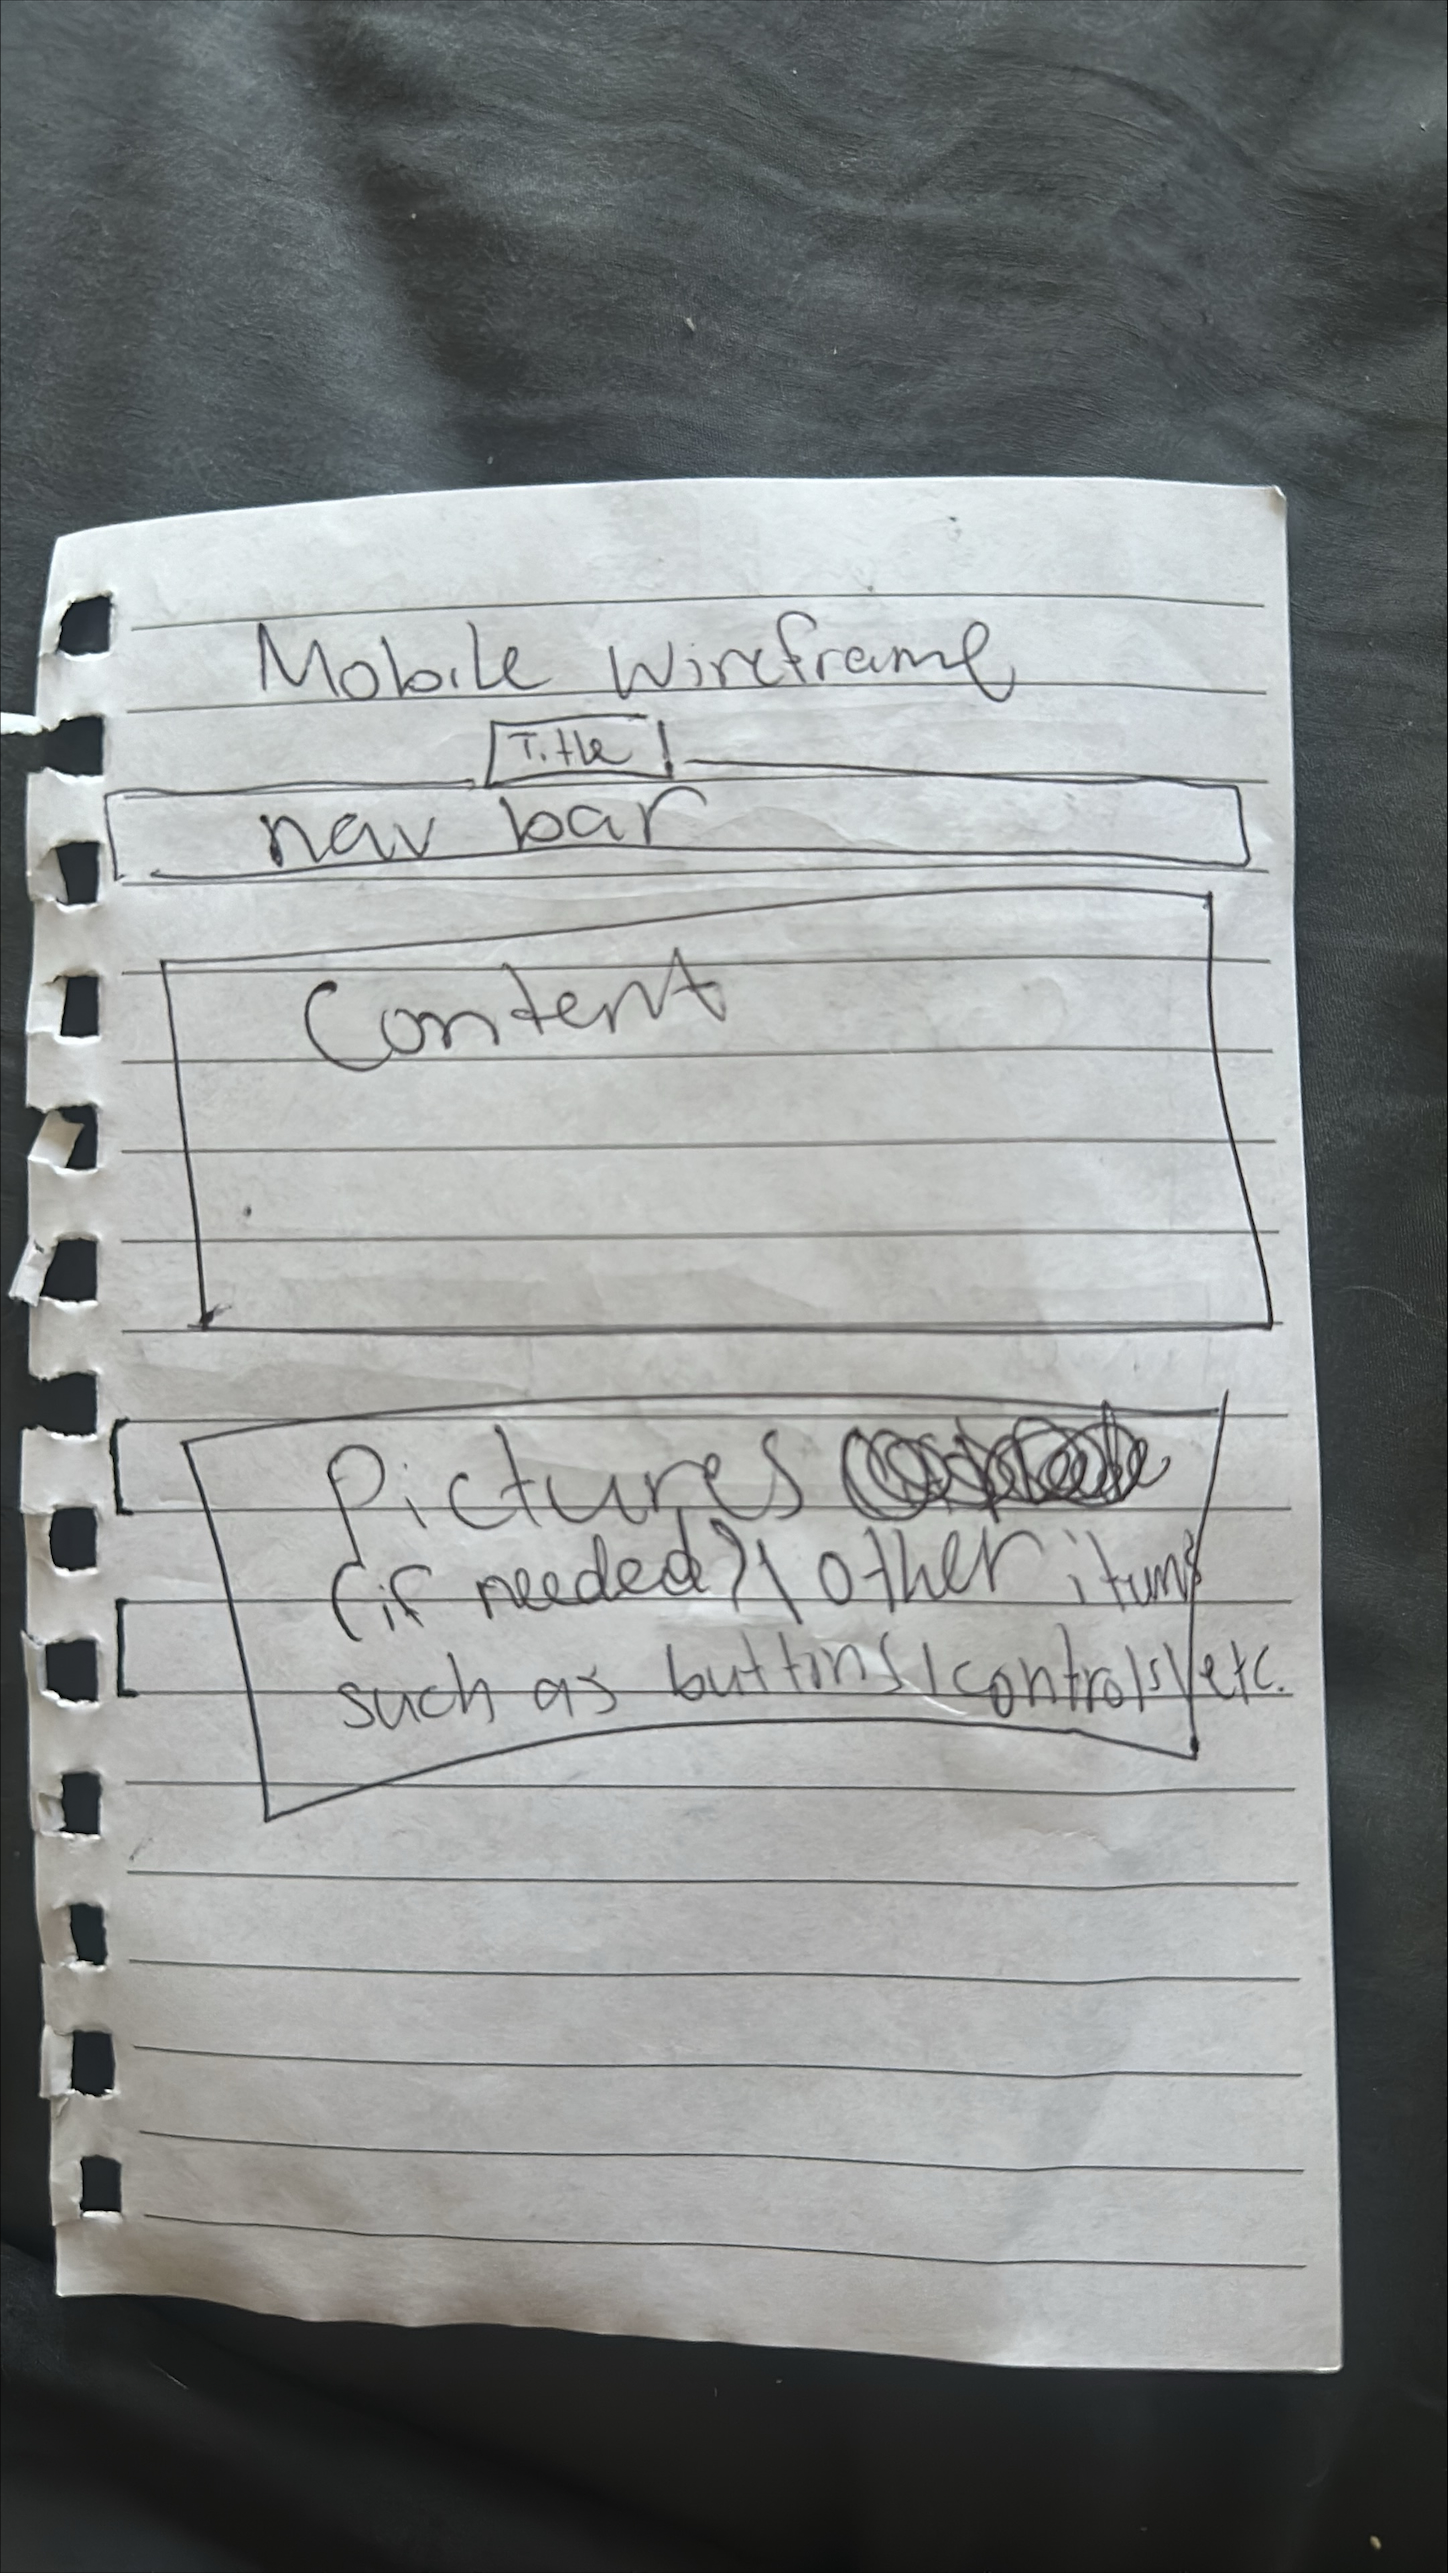 Mobile Wireframe
Title
nav bar
Content
Pictures
(if needed) \ other items
such as buttons / controls / etc.